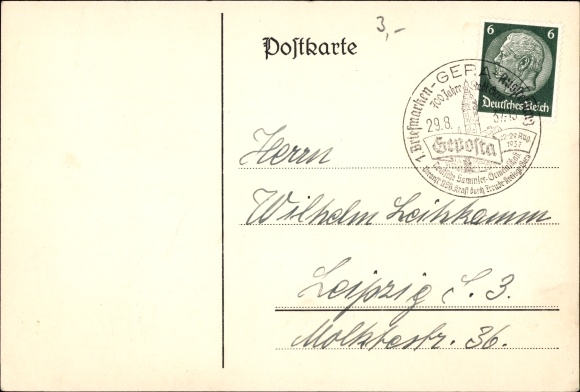 3,-
Postkarte
6 6
Deutsches Reich
1. Briefmarken-
GERA
700 Jahre
29.8. 37
Geposta
29 Aug
1937
Deutsche Sammler-Gemeinschaft
Herrn
Wilhelm Leitzkamm
Leipzig S. 3.
Moltkestr. 36.